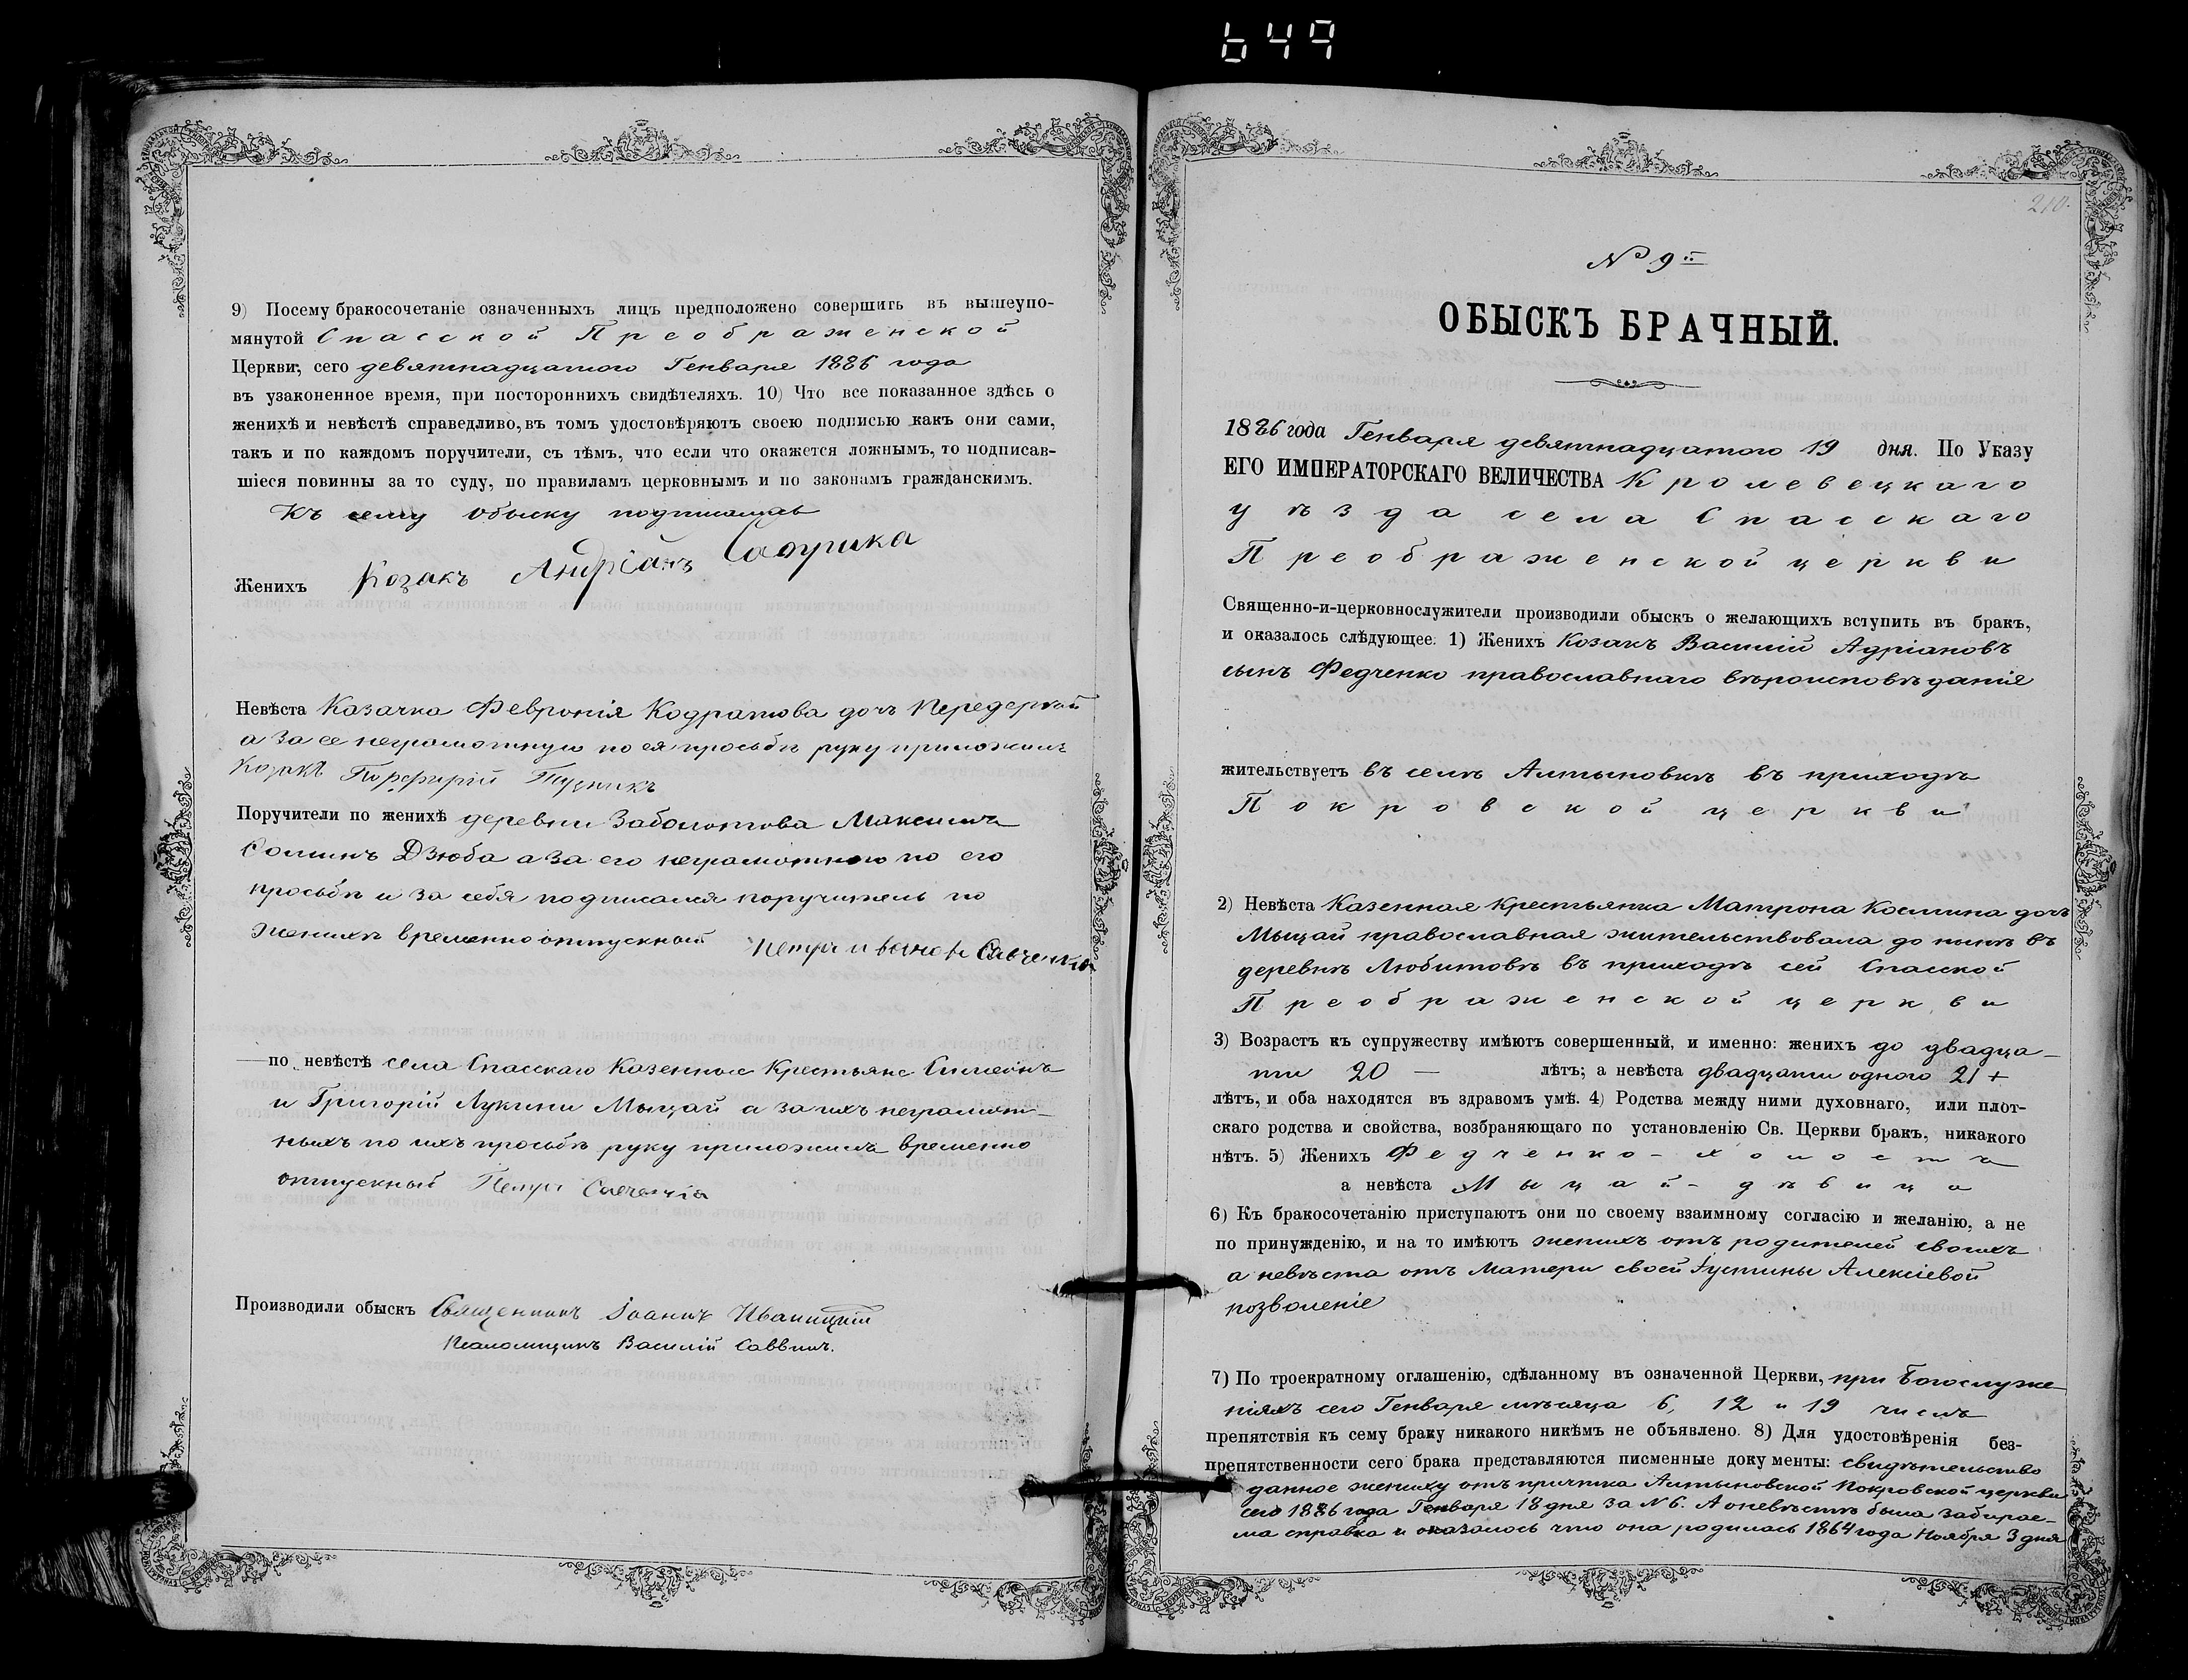 649
9) Посему бракосочетаніе означенныхъ лицъ предположено совершить въ вышеупо-
мянутой Спасской Преображенской
Церкви, сего девятнадцатого Генваря 1886 года
въ узаконенное время, при постороннихъ свидѣтеляхъ. 10) Что все показанное здѣсь о
женихѣ и невѣстѣ справедливо, въ томъ удостовѣряютъ своею подписью какъ они сами,
такъ и по каждомъ поручители, съ тѣмъ, что если что окажется ложнымъ, то подписав-
шіеся повинны за то суду, по правиламъ церковнымъ и по законамъ гражданскимъ.
Къ сему обыску подписались
Женихъ Козакъ Андріанъ
Невѣста Казачка Февронія Кодратова дочь Передерій
а за ее неграмотную по ея просьбѣ руку приложилъ
Козакъ Порфирій
Поручители по женихѣ деревни Заболотова Максимъ
Дзюба а за его неграмотного по его
просьбѣ и за себя подписался поручитель по
женихѣ временно отпускный Петръ Ивановъ Савченко
по невѣстѣ села Спасскаго Казенные Крестьяне Симеонъ
и Григорій Лукины Мыцай а за ихъ неграмот-
ныхъ по ихъ просьбѣ руку приложилъ временно
отпускный Петръ Савченко
Производили обыскъ Священникъ Іоаннъ Иваницкій
Псаломщикъ Василій Саввичъ.
210.
№ 9й
ОБЫСКЪ БРАЧНЫЙ.
1886 года Генваря девятнадцатого 19 дня. По Указу
ЕГО ИМПЕРАТОРСКАГО ВЕЛИЧЕСТВА Кролевецкаго
уѣзда села Спасскаго
Преображенской церкви
Священно-и-церковнослужители производили обыскъ о желающихъ вступить въ бракъ,
и оказалось слѣдующее: 1) Женихъ Козакъ Василій Адріановъ
сынъ Федченко православнаго вѣроисповѣданія
жительствуетъ въ селѣ Алтыновкѣ въ приходѣ
Покровской церкви
2) Невѣста Казенная Крестьянка Матрона Космина дочь
Мыцай православная жительствовала до нынѣ въ
деревнѣ Любитовѣ въ приходѣ сей Спасской
Преображенской церкви
3) Возрастъ къ супружеству имѣютъ совершенный, и именно: женихъ до двадца-
ти 20 — лѣтъ; а невѣста двадцати одного 21 +
лѣтъ, и оба находятся въ здравомъ умѣ. 4) Родства между ними духовнаго, или плот-
скаго родства и свойства, возбраняющаго по установленію Св. Церкви бракъ, никакого
нѣтъ. 5) Женихъ Федченко - холостъ
а невѣста Мыцай - дѣвица
6) Къ бракосочетанію приступаютъ они по своему взаимному согласію и желанію, а не
по принужденію, и на то имѣютъ женихъ отъ родителей своихъ
а невѣста отъ матери своей Іустины Алексіевой
позволеніе
7) По троекратному оглашенію, сдѣланному въ означенной Церкви, при Богослуже-
ніяхъ сего Генваря мѣсяца 6, 12 и 19 числъ
препятствія къ сему браку никакого никѣмъ не объявлено. 8) Для удостовѣренія без-
препятственности сего брака представляются писменные документы: свидѣтельство
данное жениху отъ причта Алтыновской Покровской церкви
сего 1886 года Генваря 18 дня за № 6. А о невѣстѣ была забирае-
ма справка и оказалось что она родилась 1864 года Ноября 3 дня